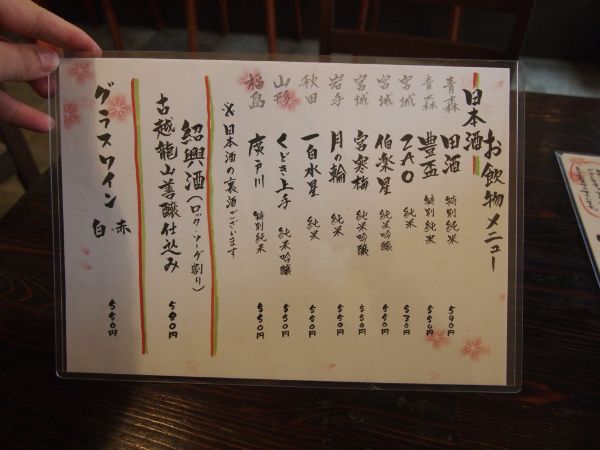 お飲物メニュー
日本酒
青森 田酒 特別純米 590円
青森 豊盃 特別純米 550円
宮城 ZAO 純米 530円
宮城 伯楽星 純米吟醸 550円
宮城 宮寒梅 純米吟醸 550円
岩手 月の輪 純米 550円
秋田 一白水星 純米 550円
山形 くどき上手 純米吟醸 550円
福島 廣戸川 特別純米 550円
※日本酒の裏酒ございます
紹興酒(ロック・ソーダ割り)
古越龍山善醸仕込み 580円
グラスワイン 白・赤 550円